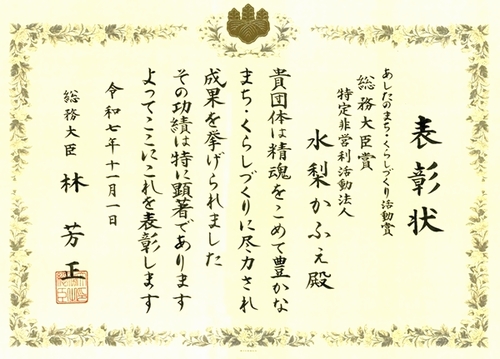 表彰状
あしたのまち・くらしづくり活動賞
総務大臣賞
特定非営利活動法人
水梨かふぇ殿
貴団体は精魂をこめて豊かな
まち・くらしづくりに尽力され
成果を挙げられました
その功績は特に顕著であります
よってここにこれを表彰します
令和七年十一月一日
総務大臣 林芳正